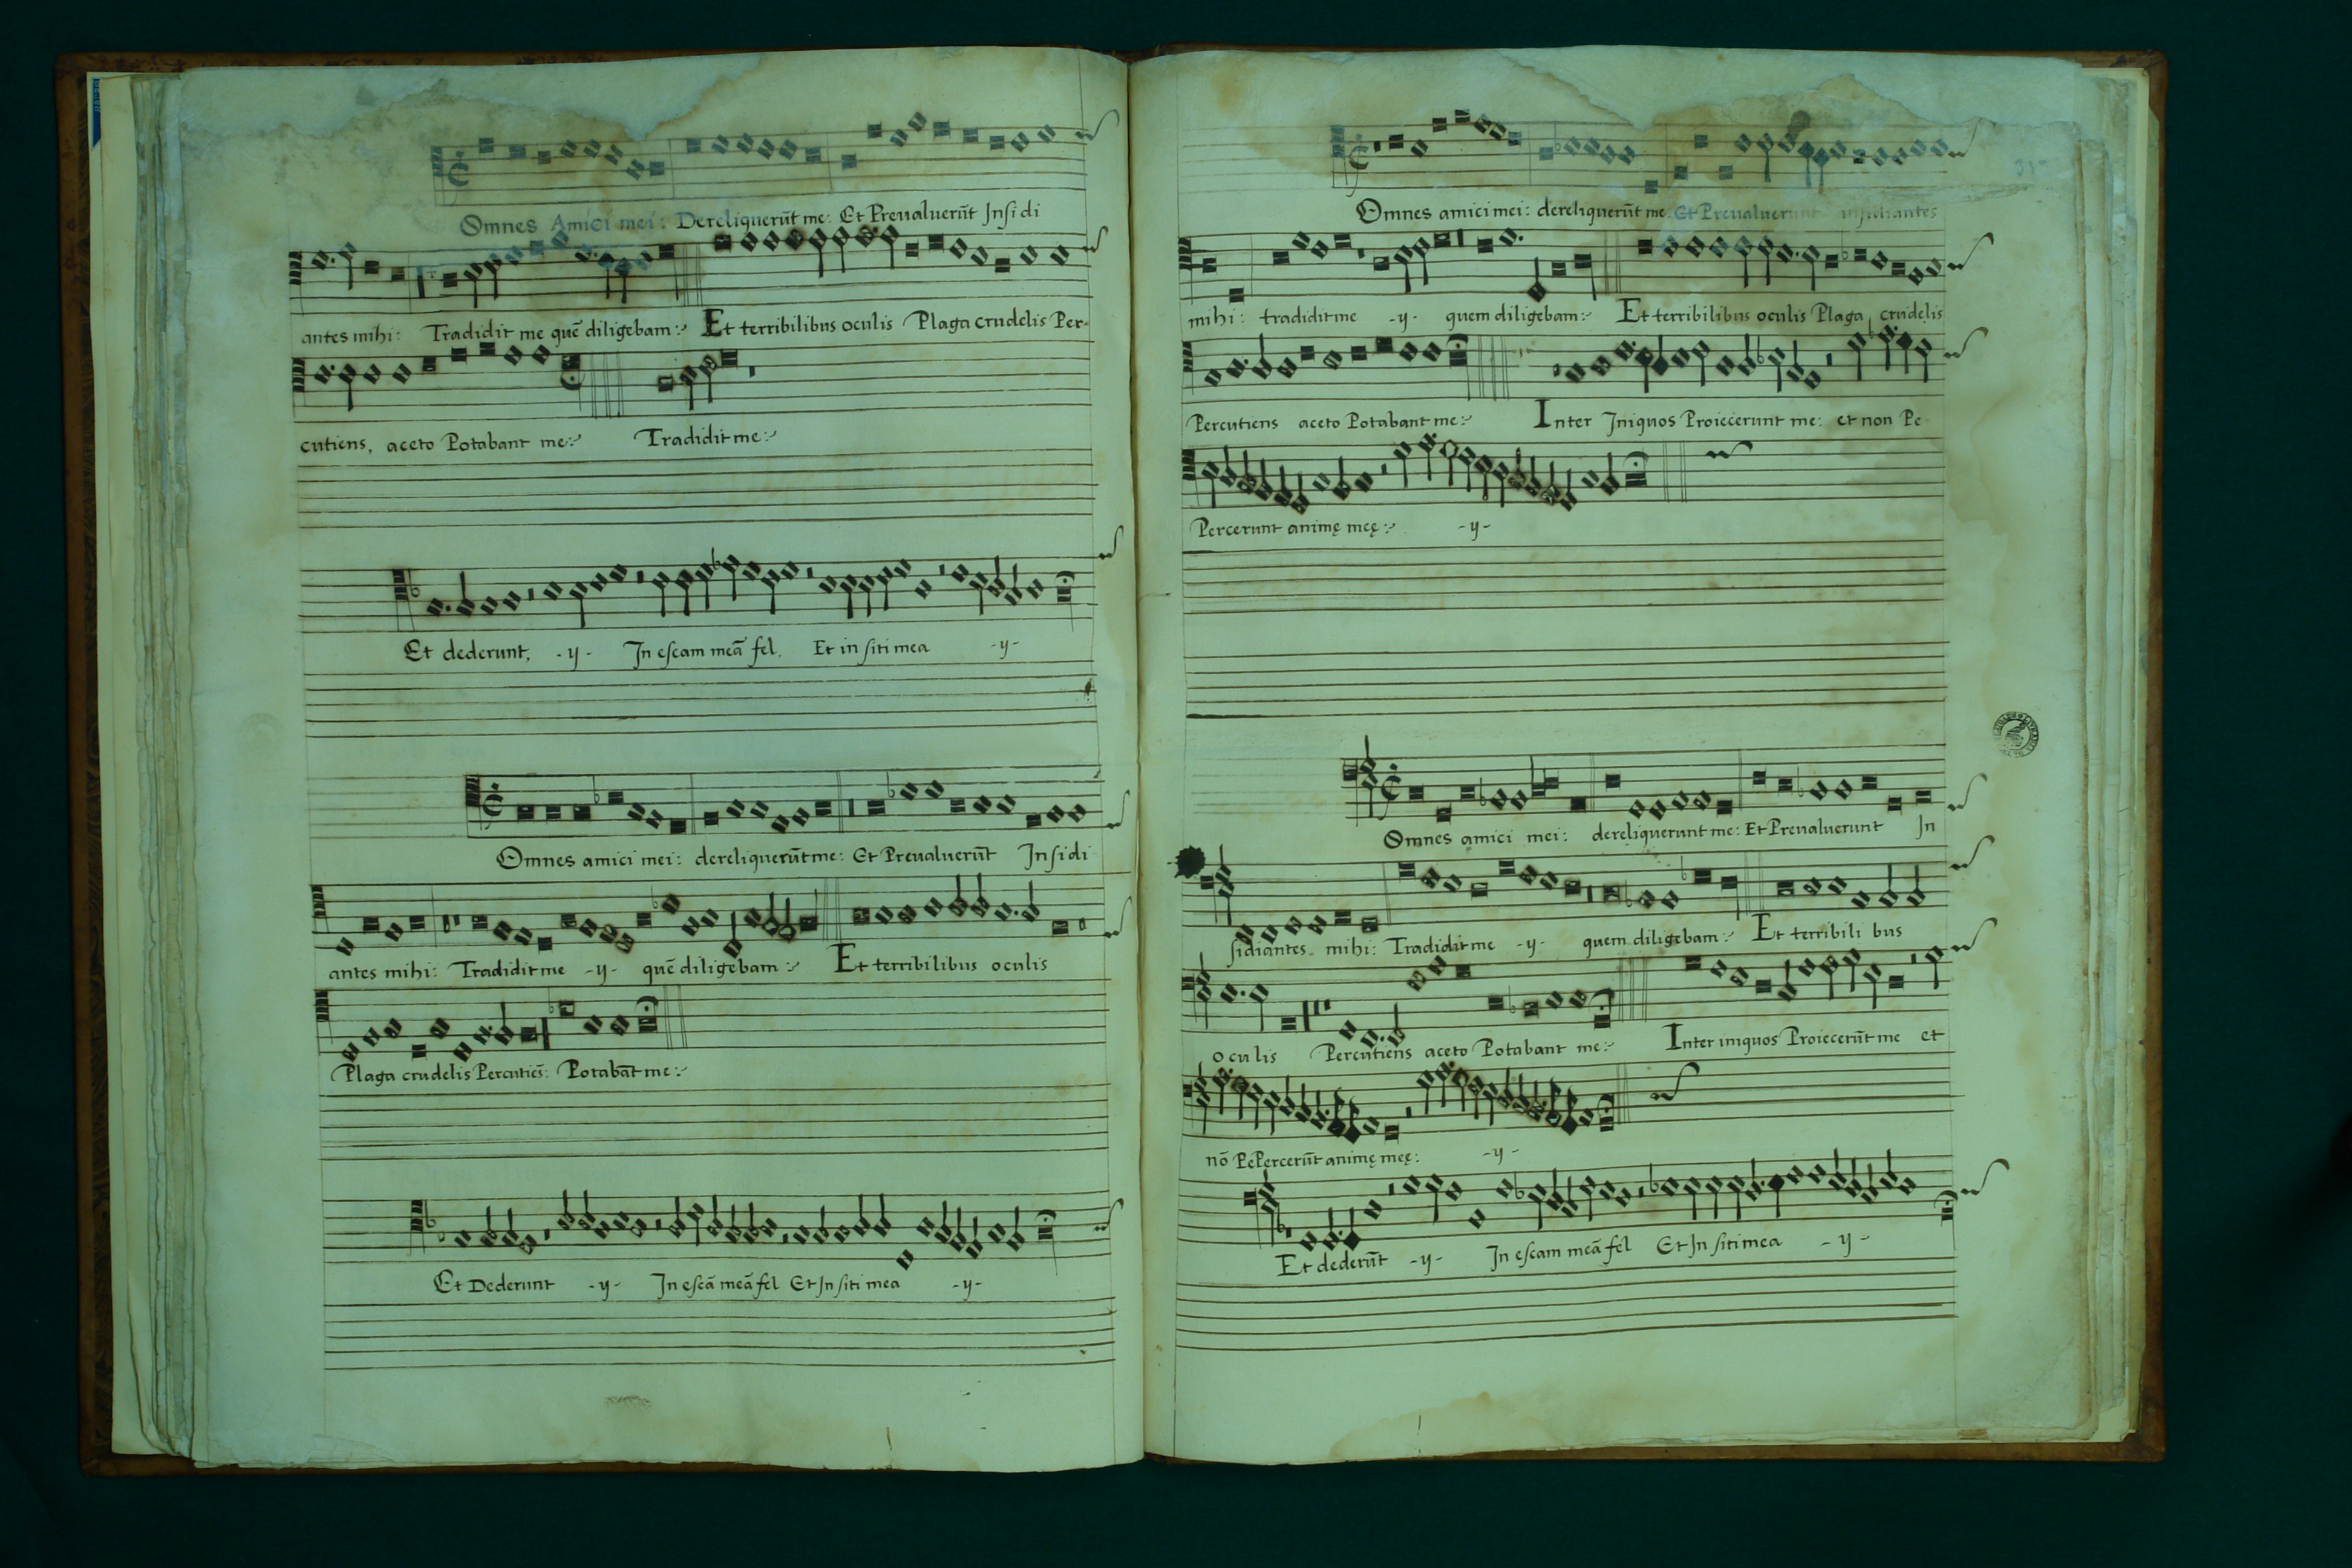 Omnes Amici mei: Dereliquerūt me: Et Preualuerūt Insidi
antes mihi: Tradidit me quē diligebam: Et terribilibus oculis Plaga crudelis Per-
cutiens, aceto Potabant me: Tradidit me:
Et dederunt, -y- In escam meā fel. Et in siti mea -y-
Omnes amici mei: dereliquerūt me: Et Preualuerūt Insidi
antes mihi: Tradidit me -y- quē diligebam: Et terribilibus oculis
Plaga crudelis Percutiēs: Potabāt me:
Et Dederunt -y- In escā meā fel Et In siti mea -y-
Omnes amici mei: dereliquerūt me: Et Preualuerunt insidiantes
mihi: tradidit me -y- quem diligebam: Et terribilibus oculis Plaga crudelis
Percutiens aceto Potabant me: Inter Iniquos Proiecerunt me: et non Pe
Percerunt animę meę: -y-
Omnes amici mei: dereliquerunt me: Et Preualuerunt In
sidiantes mihi: Tradidit me -y- quem diligebam: Et terribili bus
oculis Percutiens aceto Potabant me: Inter iniquos Proiecerūt me et
nō PePercerūt animę meę: -y-
Et dederūt -y- In escam meā fel Et In siti mea -y-